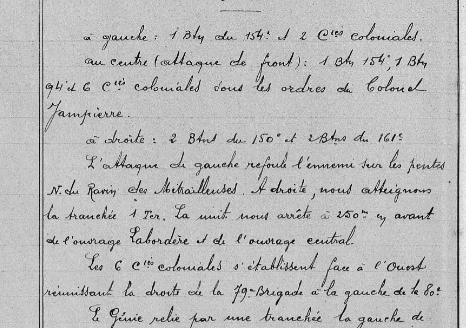 à gauche : 1 Btn du 154e et 2 Cies coloniales.
au centre (attaque de front) : 1 Btn 154e, 1 Btn
94e et 6 Cies coloniales sous les ordres du Colonel
Jampierre.
à droite : 2 Btns du 150e et 2 Btns du 161e
L'attaque de gauche refoule l'ennemi sur les pentes
N. du Ravin des Mitrailleuses. A droite, nous atteignons
la tranchée 1 Ter. La nuit nous arrête à 250m en avant
de l'ouvrage Labordère et de l'ouvrage central.
Les 6 Cies coloniales s'établissent face à l'Ouest
réunissant la droite de la 79e Brigade à la gauche de la 80e
Le Génie relie par une tranchée la gauche de